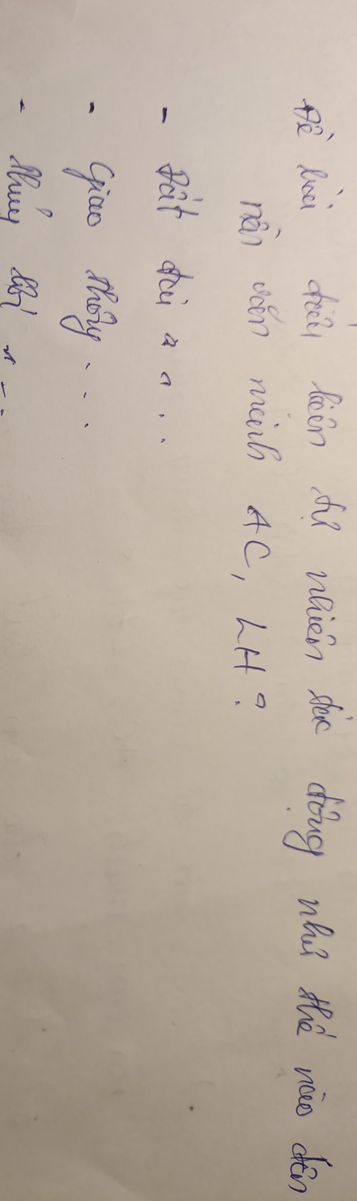 Đề bài điều kiện tự nhiên tác động như thế nào đến
nền văn minh AC, LH?
- Đất đai
- Giao thông...
- Thủy lợi